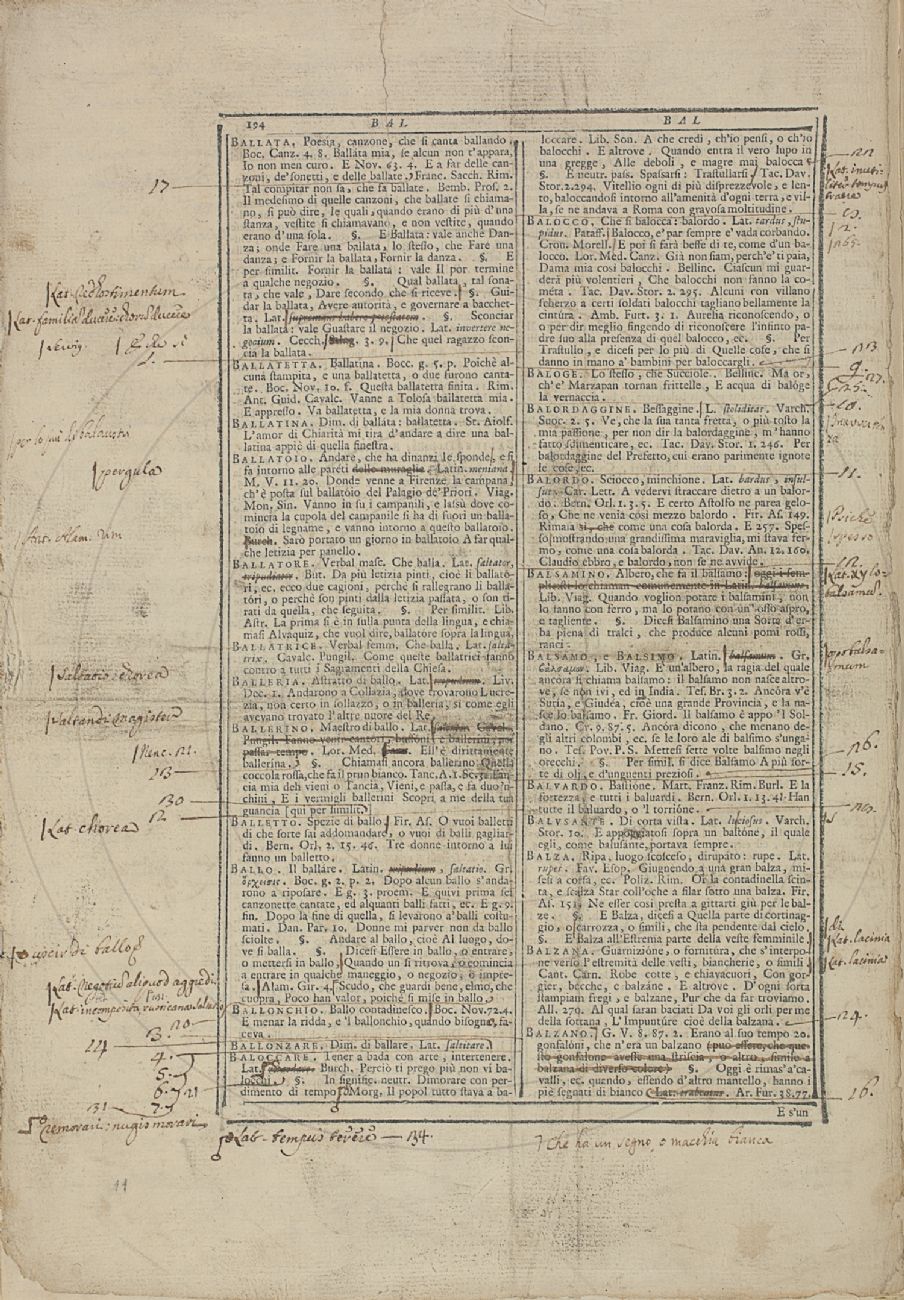 194
BAL
BAL
BALLATA. Poesia, canzone, che si canta ballando.
Boc. Canz. 4. 8. Ballata mia, se alcun non t'appara,
Io non men curo. E Nov. 63. 4. E a far delle can-
zoni, de'sonetti, e delle ballate. Franc. Sacch. Rim.
Tal compitar non sa, che fa ballate. Bemb. Pros. 2.
Il medesimo di quelle canzoni, che ballate si chiama-
no, si può dire, le quali, quando erano di più d'una
stanza, vestite si chiamavano, e non vestite, quando
erano d'una sola. §. E Ballata: vale anche Dan-
za; onde Fare una ballata, lo stesso, che Fare una
danza; e Fornir la ballata, Fornir la danza. §. E
per similit. Fornir la ballata: vale Il por termine
a qualche negozio. §. Qual ballata, tal sona-
ta, che vale, Dare secondo che si riceve. §. Gui-
dar la ballata, Avere autorità, e governare a bacchet-
ta. Lat. §. Sconciar
la ballata: vale Guastare il negozio. Lat. invertere ne-
gocium. Cecch. 3. 9. Che quel ragazzo scon-
cia la ballata.
BALLATETTA. Ballatina. Bocc. g. 5. p. Poichè al-
cuna stampita, e una ballatetta, o due furono canta-
te. Boc. Nov. 10. f. Questa ballatetta finita. Rim.
Ant. Guid. Cavalc. Vanne a Tolosa ballatetta mia.
E appresso. Va ballatetta, e la mia donna trova.
BALLATINA. Dim. di ballata: ballatetta. St. Aiolf.
L'amor di Chiarità mi tira d'andare a dire una bal-
latina appiè di quella finestra.
BALLATOIO. Andare, che ha dinanzi le sponde, e si
fa intorno alle pareti delle muraglie. Latin. meniana
M. V. 11. 20. Donde venne a Firenze la campana,
ch'è posta sul ballatoio del Palagio de'Priori. Viag.
Mon. Sin. Vanno in su i campanili, e lassù dove co-
mincia la cupola del campanile si ha di fuori un balla-
toio di legname, e vanno intorno a questo ballatoio.
Burch. Sarò portato un giorno in ballatoio A far qual-
che letizia per panello.
BALLATORE. Verbal masc. Che balla. Lat. saltator,
tripudiator. But. Da più letizia pinti, cioè li ballato-
ri, ec. ecco due cagioni, perchè si rallegrano li balla-
tori, o perchè son pinti dalla letizia passata, o son ti-
rati da quella, che seguita. §. Per similit. Lib.
Astr. La prima si è in sulla punta della lingua, e chia-
masi Alvaquiz, che vuol dire, ballatore sopra la lingua.
BALLATRICE. Verbal femm. Che balla. Lat. salta-
trix. Cavalc. Pungil. Come queste ballatrici fanno
contro a tutti i Sagramenti della Chiesa.
BALLERIA. Astratto di ballo. Lat. tripudium. Liv.
Dec. 1. Andarono a Collazia, dove trovarono Lucre-
zia, non certo in sollazzo, o in balleria, sì come egli
avevano trovato l'altre nuore del Re.
BALLERINO. Maestro di ballo. Lat. saltator. Caval.
Pungil. Fanno venir cantori, buffoni e ballerini, per
passar tempo. Lor. Med. Ell'è dirittamente
ballerina. §. Chiamasi ancora ballerino Quella
coccola rossa, che fa il prun bianco. Tanc. A. 1. Sc. 3. Lan-
cia mia deli vieni o Tancia, Vieni, e passa, e fa duo'n-
chini, E i vermigli ballerini Scopri a me della tua
guancia [qui per similit.]
BALLETTO. Spezie di ballo. Fir. As. O vuoi balletti
di che forte sai addomandare, o vuoi di balli gagliar-
di. Bern. Orl. 2. 15. 46. Tre donne intorno a lui
fanno un balletto.
BALLO. Il ballare. Latin. tripudium, saltatio. Gr.
ὄρχησις. Boc. g. 2. p. 2. Dopo alcun ballo s'anda-
rono a riposare. E g. 3. proem. E quivi prima sei
canzonette cantate, ed alquanti balli fatti, ec. E g. 9.
fin. Dopo la fine di quella, si levarono a'balli costu-
mati. Dan. Par. 10. Donne mi parver non da ballo
sciolte. §. Andare al ballo, cioè Al luogo, do-
ve si balla. §. Dicesi Essere in ballo, o entrare,
o mettersi in ballo, Quando un si ritrova, o comincia
a entrare in qualche maneggio, o negozio, o impre-
sa. Alam. Gir. 4. Scudo, che guardi bene, elmo, che
cuopra, Poco han valor, poichè si mise in ballo.
BALLONCHIO. Ballo contadinesco. Boc. Nov. 72. 4.
E menar la ridda, e 'l ballonchio, quando bisogno fa-
ceva.
BALLONZARE. Dim. di ballare. Lat. salitare.
BALOCCARE. Tener a bada con arte, intertenere.
Lat. Burch. Perciò ti prego più non vi ba-
locchi. §. In signific. neutr. Dimorare con per-
dimento di tempo. Morg. Il popol tutto stava a ba-
loccare. Lib. Son. A che credi, ch'io pensi, o ch'io
balocchi. E altrove. Quando entra il vero lupo in
una gregge, Alle deboli, e magre mai balocca.
§. E neutr. pass. Spassarsi: Trastullarsi. Tac. Dav.
Stor. 2. 294. Vitellio ogni dì più disprezzevole, e len-
to, baloccandosi intorno all'amenità d'ogni terra, e vil-
la, se ne andava a Roma con gravosa moltitudine.
BALOCCO. Che si balocca: balordo. Lat. tardus, stu-
pidus. Pataff. Balocco, e' par sempre e' vada corbando.
Cron. Morell. E poi si farà beffe di te, come d'un ba-
locco. Lor. Med. Canz. Già non siam, perch'e' ti paia,
Dama mia così balocchi. Bellinc. Ciascun mi guar-
derà più volentieri, Che balocchi non fanno la co-
meta. Tac. Dav. Stor. 2. 295. Alcuni con villano
scherzo a certi soldati balocchi tagliano bellamente la
cintura. Amb. Furt. 3. 1. Aurelia riconoscendo, o
o per dir meglio fingendo di riconoscere l'infinto pa-
dre suo alla presenza di quel balocco, ec. §. Per
Trastullo, e dicesi per lo più di Quelle cose, che si
danno in mano a' bambini per baloccargli.
BALOGE. Lo stesso, che Succiole. Bellinc. Ma or,
ch'e' Marzapan tornan frittelle, E acqua di balòge
la vernaccia.
BALORDAGGINE. Bessaggine. L. stoliditas. Varch.
Suoc. 2. 5. Ve', che la sua tanta fretta, o più tosto la
mia passione, per non dir la balordaggine, m'hanno
fatto sdimenticare, ec. Tac. Dav. Stor. 1. 246. Per
balordaggine del Prefetto, cui erano parimente ignote
le cose, ec.
BALORDO. Sciocco, minchione. Lat. bardus, insul-
sus. Car. Lett. A vedervi straccare dietro a un balor-
do. Bern. Orl. 1. 3. 5. E certo Astolfo ne parea gelo-
so, Che ne venia così mezzo balordo. Fir. As. 149.
Rimasa sì, che come una cosa balorda. E 257. Spes-
so mostrando una grandissima maraviglia, mi stava fer-
mo, come una cosa balorda. Tac. Dav. An. 12. 160.
Claudio ebbro, e balordo, non se ne avvide.
BALSAMINO. Albero, che fa il balsamo: oggi i sem-
Lib. Viag. Quando voglion potare i balsamini, non
lo fanno con ferro, ma lo potano con un'osso aspro,
e tagliente. §. Dicesi Balsamino una Sorta d'er-
ba piena di tralci, che produce alcuni pomi rossi,
ranci.
BALSAMO, e BALSIMO. Latin. balsamum. Gr.
βάλσαμον. Lib. Viag. E' un'albero, la ragia del quale
ancora si chiama balsamo: il balsamo non nasce altro-
ve, se non ivi, ed in India. Tes. Br. 3. 2. Ancora v'è
Suria, e Giudea, cioè una grande Provincia, e la na-
sce lo balsamo. Fr. Giord. Il balsamo è appo 'l Sol-
dano. Cr. 9. 87. 5. Ancora dicono, che menano de-
gli altri colombi, ec. se le loro ale di balsamo s'unga-
no. Tes. Pov. P. S. Mettesi sette volte balsamo negli
orecchi. §. Per simil. si dice Balsamo A più sor-
te di olj, e d'unguenti preziosi.
BALVARDO. Bastione. Matt. Franz. Rim. Burl. E la
fortezza, e tutti i baluardi. Bern. Orl. 1. 13. 41. Han
tutte il baluardo, o 'l torrione.
BALUSANTE. Di corta vista. Lat. lusciosus. Varch.
Stor. 10. E appoggiatosi sopra un bastone, il quale
egli, come balusante, portava sempre.
BALZA. Ripa, luogo scosceso, dirupato: rupe. Lat.
rupes. Fav. Esop. Giugnendo a una gran balza, mi-
sesi a cossa, ec. Poliz. Rim. Oi la contadinella scin-
ta, e scalza Star coll'oche a filar sotto una balza. Fir.
As. 151. Ne esser così presta a gittarti giù per le bal-
ze. §. E Balza, dicesi a Quella parte di cortinag-
gio, o carrozza, o simili, che sta pendente dal cielo.
§. E Balza all'Estrema parte della veste femminile.
BALZANA. Guarnizione, o fornitura, che s'interpo-
ne verso l'estremità delle vesti, biancherie, o simili.
Cant. Carn. Robe cotte, e chiavacuori, Con gor-
gier, becche, e balzane. E altrove. D'ogni sorta
stampiam fregi, e balzane, Pur che da far troviamo.
All. 279. Al qual saran baciati Da voi gli orli per me
della sottana, L'Impunture cioè della balzana.
BALZANO. G. V. 8. 87. 2. Erano al suo tempo 20.
gonfaloni, che n'era un balzano (può essere, che que-
sto gonfalone avesse una striscia, o altro, simile a
balzana di diverso colore) §. Oggi è rimas'a'ca-
valli, ec. quando, essendo d'altro mantello, hanno i
piè segnati di bianco Ar. Fur. 38. 77.
E s'un
17
pergula
Saltatio: chorea
Saltandi magister
113
130
12.
Lat. chorea
Lat. negotiis aliquod aggredi
Lat. incomposita rusticana saltatio
13.
4.
5.
131
remorari: nugis morari
Lat. tempus terere — 134.
che ha un segno, o macchia bianca
11.
Lat. xylo-
balsamum.
opobalsa-
mum
15.
Lat. lacinia
Lat. lacinia
124.
16.